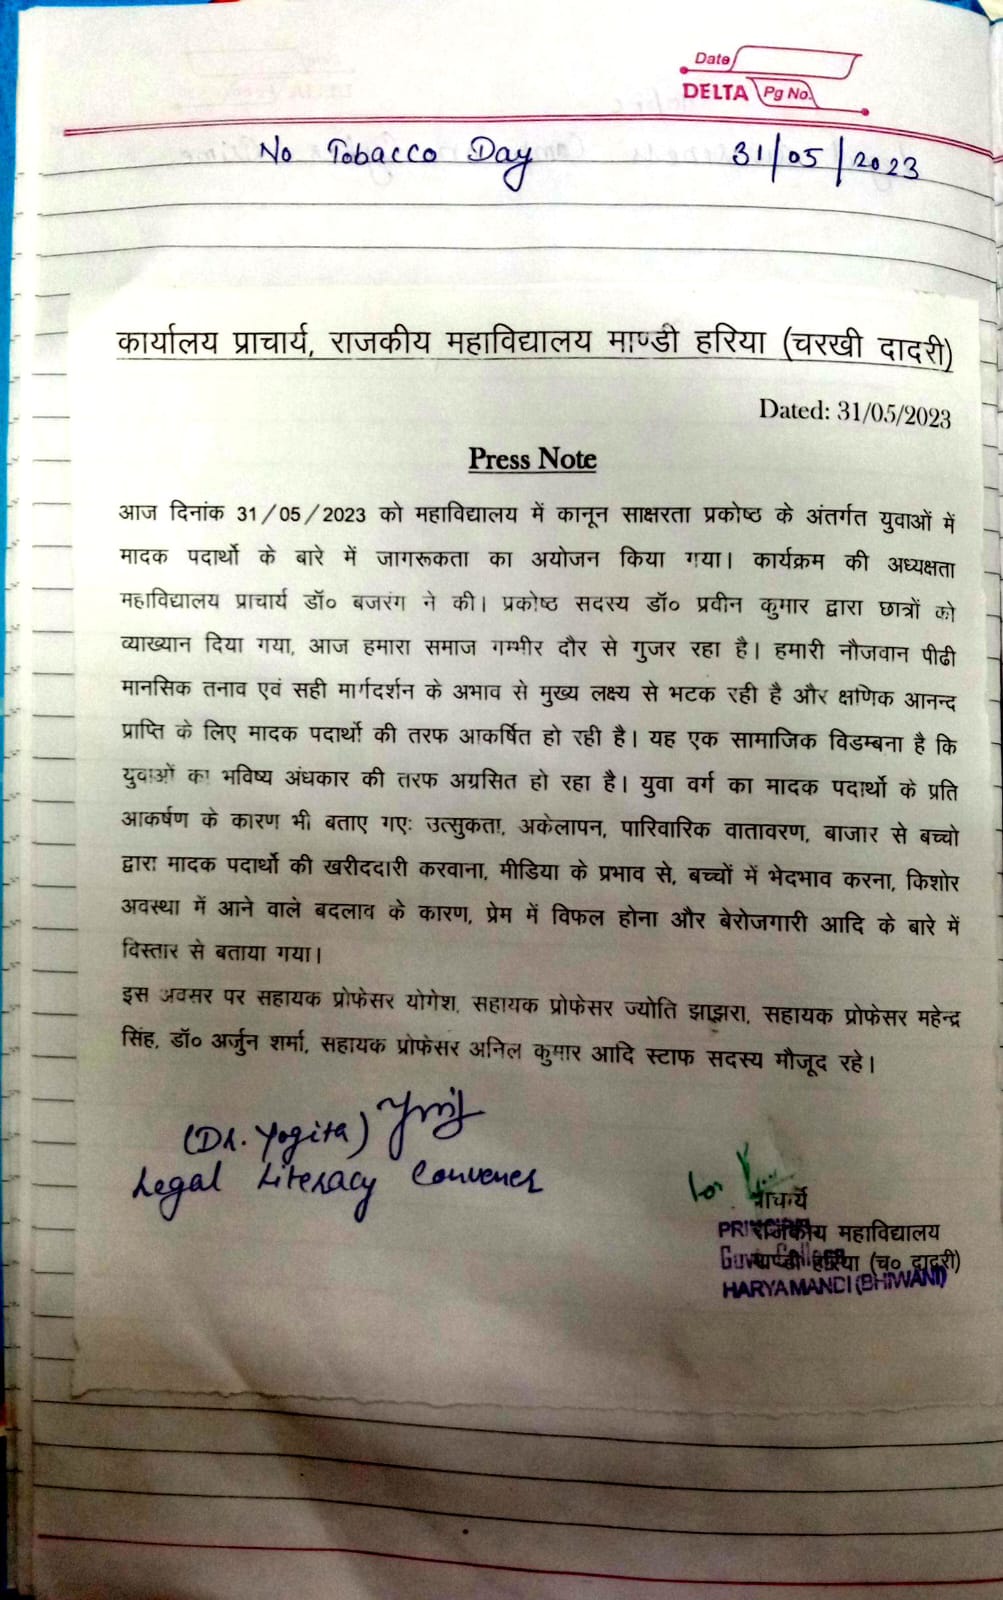 Date
DELTA Pg No.
No Tobacco Day 31/05/2023
कार्यालय प्राचार्य, राजकीय महाविद्यालय माण्डी हरिया (चरखी दादरी)
Dated: 31/05/2023
Press Note
आज दिनांक 31/05/2023 को महाविद्यालय में कानून साक्षरता प्रकोष्ठ के अंतर्गत युवाओं में
मादक पदार्थो के बारे में जागरूकता का अयोजन किया गया। कार्यक्रम की अध्यक्षता
महाविद्यालय प्राचार्य डॉ० बजरंग ने की। प्रकोष्ठ सदस्य डॉ० प्रवीन कुमार द्वारा छात्रों को
व्याख्यान दिया गया, आज हमारा समाज गम्भीर दौर से गुजर रहा है। हमारी नौजवान पीढी
मानसिक तनाव एवं सही मार्गदर्शन के अभाव से मुख्य लक्ष्य से भटक रही है और क्षणिक आनन्द
प्राप्ति के लिए मादक पदार्थो की तरफ आकर्षित हो रही है। यह एक सामाजिक विडम्बना है कि
युवाओं का भविष्य अंधकार की तरफ अग्रसित हो रहा है। युवा वर्ग का मादक पदार्थो के प्रति
आकर्षण के कारण भी बताए गएः उत्सुकता, अकेलापन, पारिवारिक वातावरण, बाजार से बच्चो
द्वारा मादक पदार्थो की खरीददारी करवाना, मीडिया के प्रभाव से, बच्चों में भेदभाव करना, किशोर
अवस्था में आने वाले बदलाव के कारण, प्रेम में विफल होना और बेरोजगारी आदि के बारे में
विस्तार से बताया गया।
इस अवसर पर सहायक प्रोफेसर योगेश, सहायक प्रोफेसर ज्योति झाझरा, सहायक प्रोफेसर महेन्द्र
सिंह, डॉ० अर्जुन शर्मा, सहायक प्रोफेसर अनिल कुमार आदि स्टाफ सदस्य मौजूद रहे।
(Dr. Yogita)
Legal Literacy Convener
for
प्राचार्य
राजकीय महाविद्यालय
माण्डी हरिया (च० दादरी)
PRINCIPAL
Govt. College
HARYA MANDI (BHIWANI)